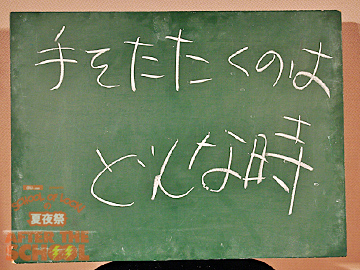 手をたたくのは
どんな時
夏夜祭
AFTER THE
SCHOOL